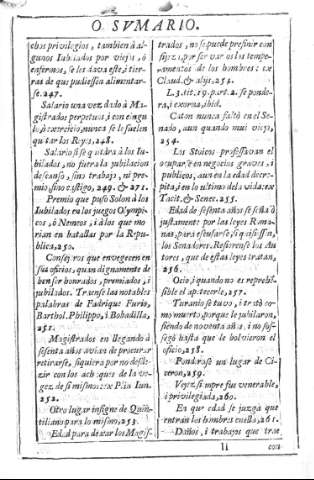 O. SVMARIO.
chos privilegios, tambien à al-
gunos Iubilados por viejos, ò
enfermos, se les dava este, i tier-
ras de que pudiessen alimentar-
se. 247.
Salario una vez dado à Ma-
gistrados perpetuos, i con cingu-
lo, ò exercicio, nunca se le suelen
quitar los Reyes, 248.
Salario si se quitàra à los Iu-
bilados, no fuera la jubilacion
descanso, sino trabajo, ni pre-
mio, sino castigo, 249. & 271.
Premio que puso Solon à los
Iubilados en los juegos Olympi-
cos, ò Nemeos, i à los que mo-
rian en batallas por la Repu-
blica, 250.
Consejeros que envegecen en
sus oficios, quan dignamente de
ban ser honrados, premiados, i
jubilados. Traense las notables
palabras de Fadrique Furio,
Barthol. Philippo, i Bobadilla,
251.
Magistrados en llegando à
sesenta años avian de procurar
retirarse, siquiera por no desli-
zir con los achaques de la ve-
gez de si mismos: ex Plin. Iun.
252.
Otro lugar insigne de Quin-
tiliano para lo mismo, 253.
Edad para dexar los Magis-
trados, no se puede prefinir con
fijeza, por ser varios los tempe-
ramentos de los hombres: ex
Claud. & alijs, 254.
L. 3. tit. 19. part. 2. se ponde-
ra, i exorna, ibid.
Caton nunca faltò en el Se-
nado, aun quando mui viejo,
254.
Los Stoicos professavan el
ocuparse en negocios graves, i
publicos, aun en la edad decre-
pita, i en lo ultimo de la vida: ex
Tacit. & Senec. 255.
Edad de sesenta años se señalò
justamente por las leyes Roma-
nas, para escusarse, si quisiessen,
los Senadores. Refierense los Au-
tores, que de estas leyes tratan,
256.
Ocio, i quando no es reprehen-
sible el apetecerle, 257.
Turanio se tuvo, i tratò co-
mo muerto, porque le jubilaron,
siendo de noventa años, i no sos-
segò hasta que le bolvieron el
oficio, 258.
Ponderase un lugar de Ci-
ceron, 259.
Vejez siempre fue venerable,
i privilegiada, 260.
En que edad se juzga que
entran los hombres en ella, 261.
Daños, i trabajos que trae
Il
con-